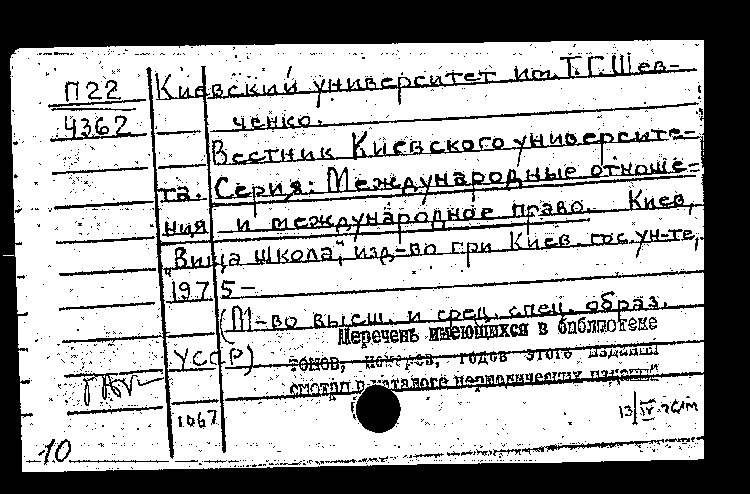 П22
4362
Киевский университет им. Т.Г. Шев-
ченко.
Вестник Киевского университе-
та. Серия: Международные отноше-
ния и международное право. Киев,
"Вища школа", изд-во при Киев. гос. ун-те,
1975-
(М-во высш. и сред. спец. образ.
УССР)
Перечень имеющихся в библиотеке
томов, номеров, годов этого издания
смотри в каталоге периодических изданий
1067
10